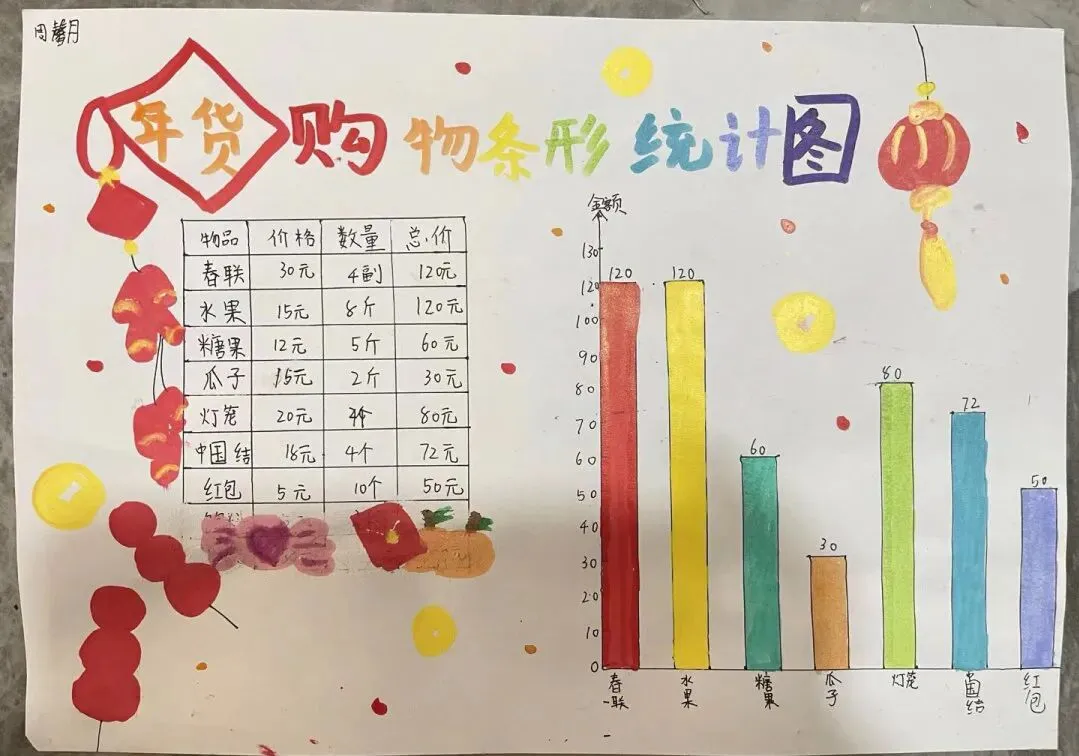 周馨月
年货购物条形统计图
物品 价格 数量 总价
春联 30元 4副 120元
水果 15元 8斤 120元
糖果 12元 5斤 60元
瓜子 15元 2斤 30元
灯笼 20元 4个 80元
中国结 18元 4个 72元
红包 5元 10个 50元
金额
130
120
100
90
80
70
60
50
40
30
20
10
0
120 120 60 30 80 72 50
春联 水果 糖果 瓜子 灯笼 中国结 红包